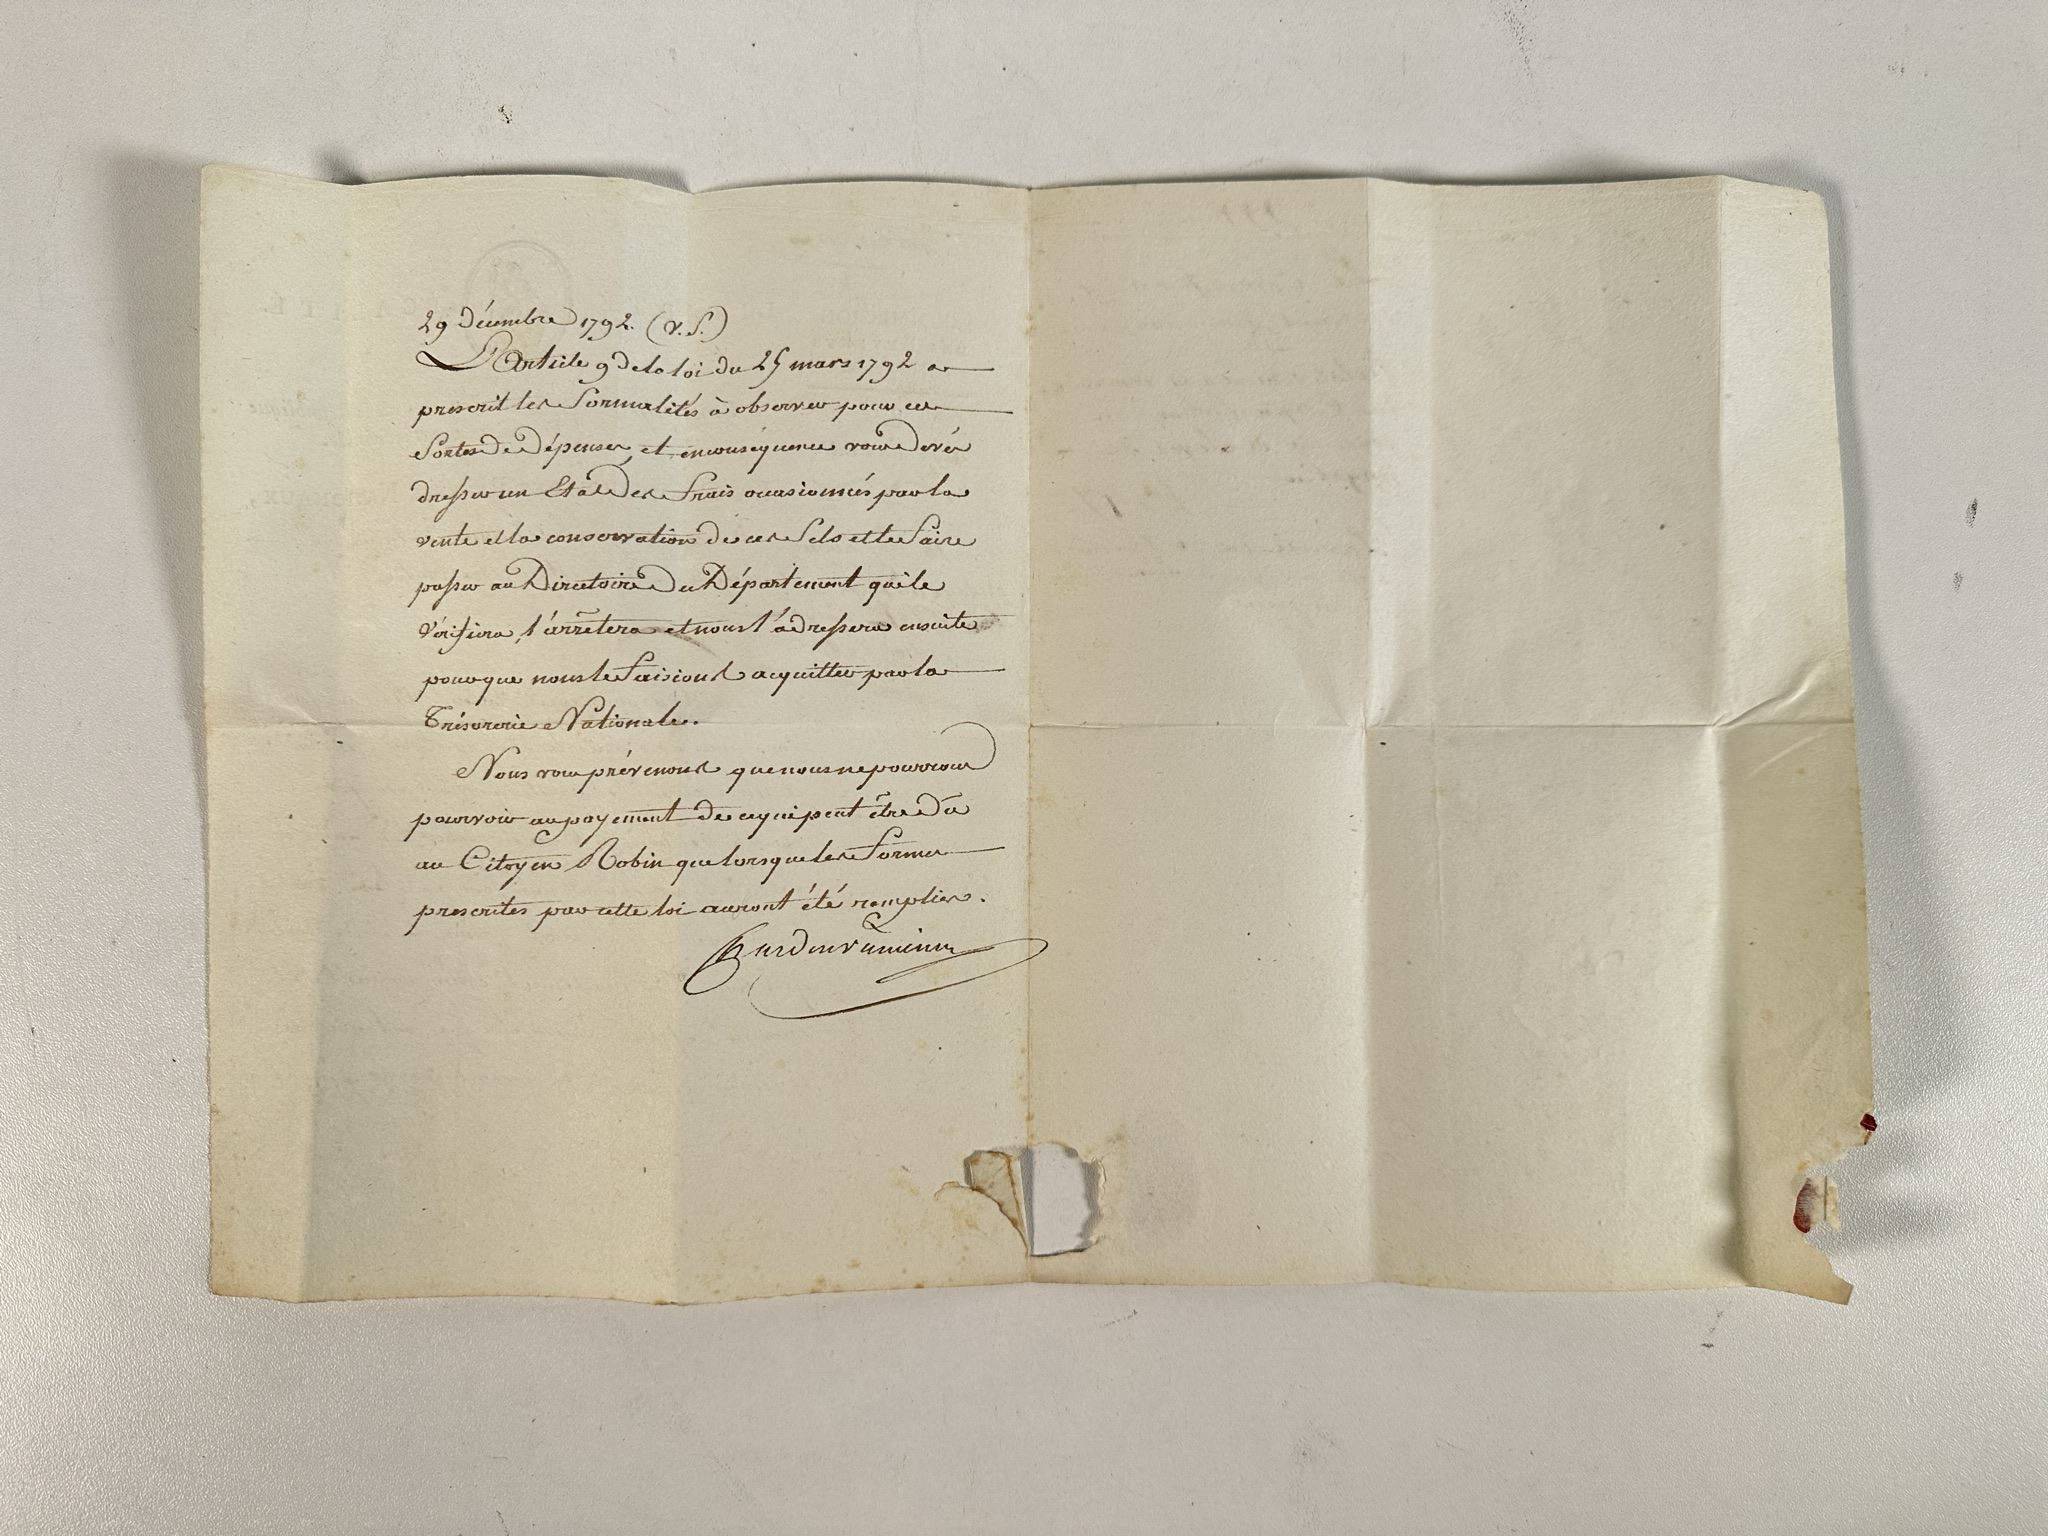 29 Décembre 1792. (v. S.)
L'Article 9 de la loi du 25 mars 1792 a
prescrit les formalités à observer pour ces
sortes de Dépenses, et en conséquence vous devés
dresser un Etat des frais occasionnés par la
vente et la conservation de ces Sels et le faire
passer au Directoire du Département qui le
vérifiera, l'arrêtera et nous l'adressera ensuite
pour que nous le faisions acquitter par la
Trésorerie Nationale.
Nous vous prévenons que nous ne pourrons
pourvoir au payement de ce qui peut être dû
au Citoyen Robin que lorsque les formes
prescrites par cette loi auront été remplies.